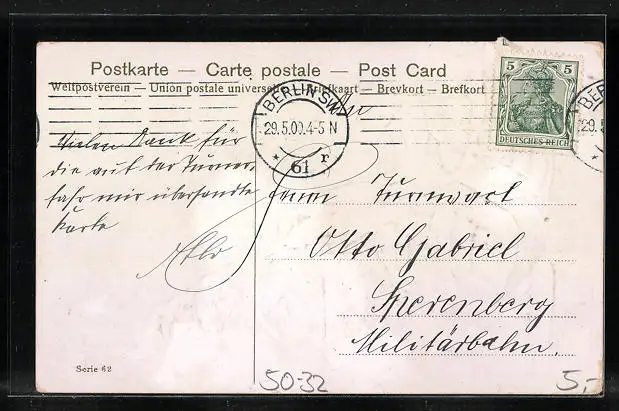 Postkarte — Carte postale — Post Card
Weltpostverein — Union postale universelle — Briefkaart — Brevkort — Brefkort
5 5
DEUTSCHES REICH
BERLIN SW.
29.5.09.4-5 N
* 61 r
BE
29.5
*
Vielen Dank für
die auf der Turner-
fahr mir übersandte
Karte
An
Herrn Turnwart
Otto Gabriel
Sperenberg
Militärbahn.
Serie 62
50-32
5,-